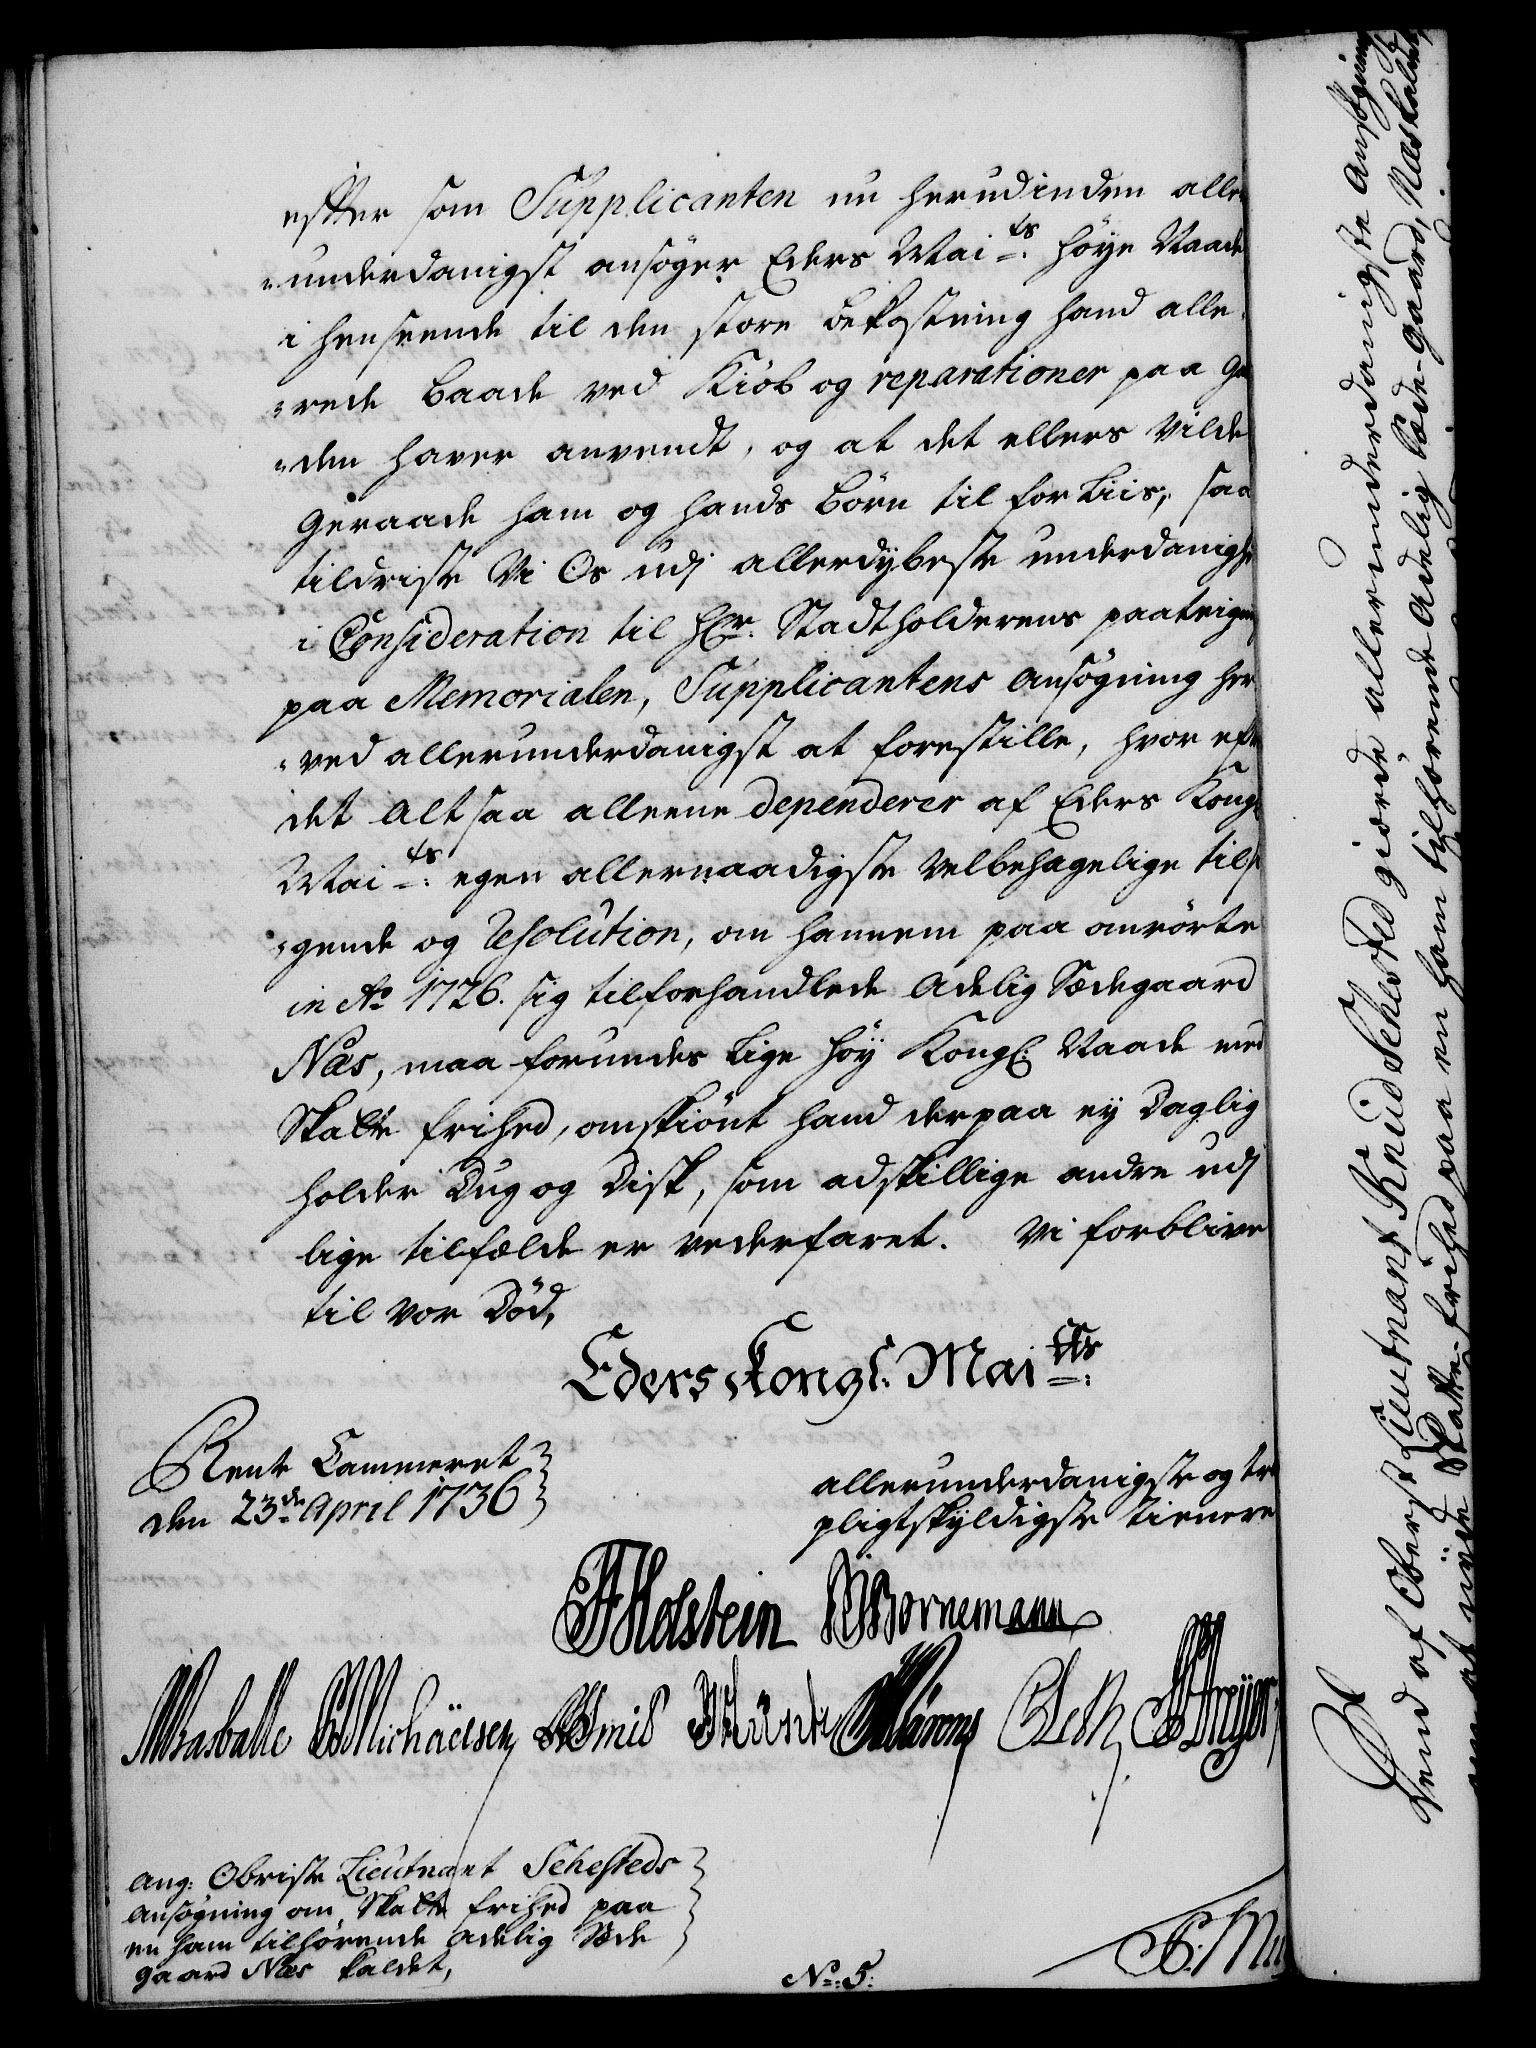 efter som Supplicanten nu herudinden aller
-underdanigst ansøger Eders Mai^ts. høye Naade
i henseende til den store bekostning hand alle-
-rede baade ved Kiøb og reparationer paa Gaa
-den haver anvendt, og at det ellers vilde
Geraade ham og hands børn til forliis; saa
tildriste Vi Os udj allerdybeste underdanigh
i Consideration til Hr. Stadtholderens paateign
paa Memorialen, Supplicantens ansøgning her
-ved allerunderdanigst at forestille, hvor eft
det altsaa alleene dependerer af Eders Kongl
Mai^ts. egen allernaadigste velbehagelige tils
-gende og Resolution, om hannem paa anrørte
in A° 1726. sig tilforhandlede adelig Sædegaard
Næs, maa forundes lige høy Kongl: Naade med
Skatte frihed, omskiønt hand derpaa ey Daglig
holder Dug og Disk, som adskillige andre udj
lige tilfælde er vederfaret. Vi forblive
til vor Død,
Eders Kongl: Mai^tts:
Rente Cammeret
den 23^de April 1736
allerunderdanigste og tro
pligtskyldigste tienere
Holstein Bornemann
Braballe Michaëlsen
ang: Obriste Lieutnant Sehesteds
ansøgning om Skatte frihed paa
en ham tilhørende adelig Sæde
gaard Næs kaldet,
N°: 5:
Vend af Oberst Lieutnant Knud Sehested giorde allerunderdanigste Ansøgning
om at nyde Skatte-frihed paa en ham tilhørende Adelig Sæde-Gaard, Næs kaldet,